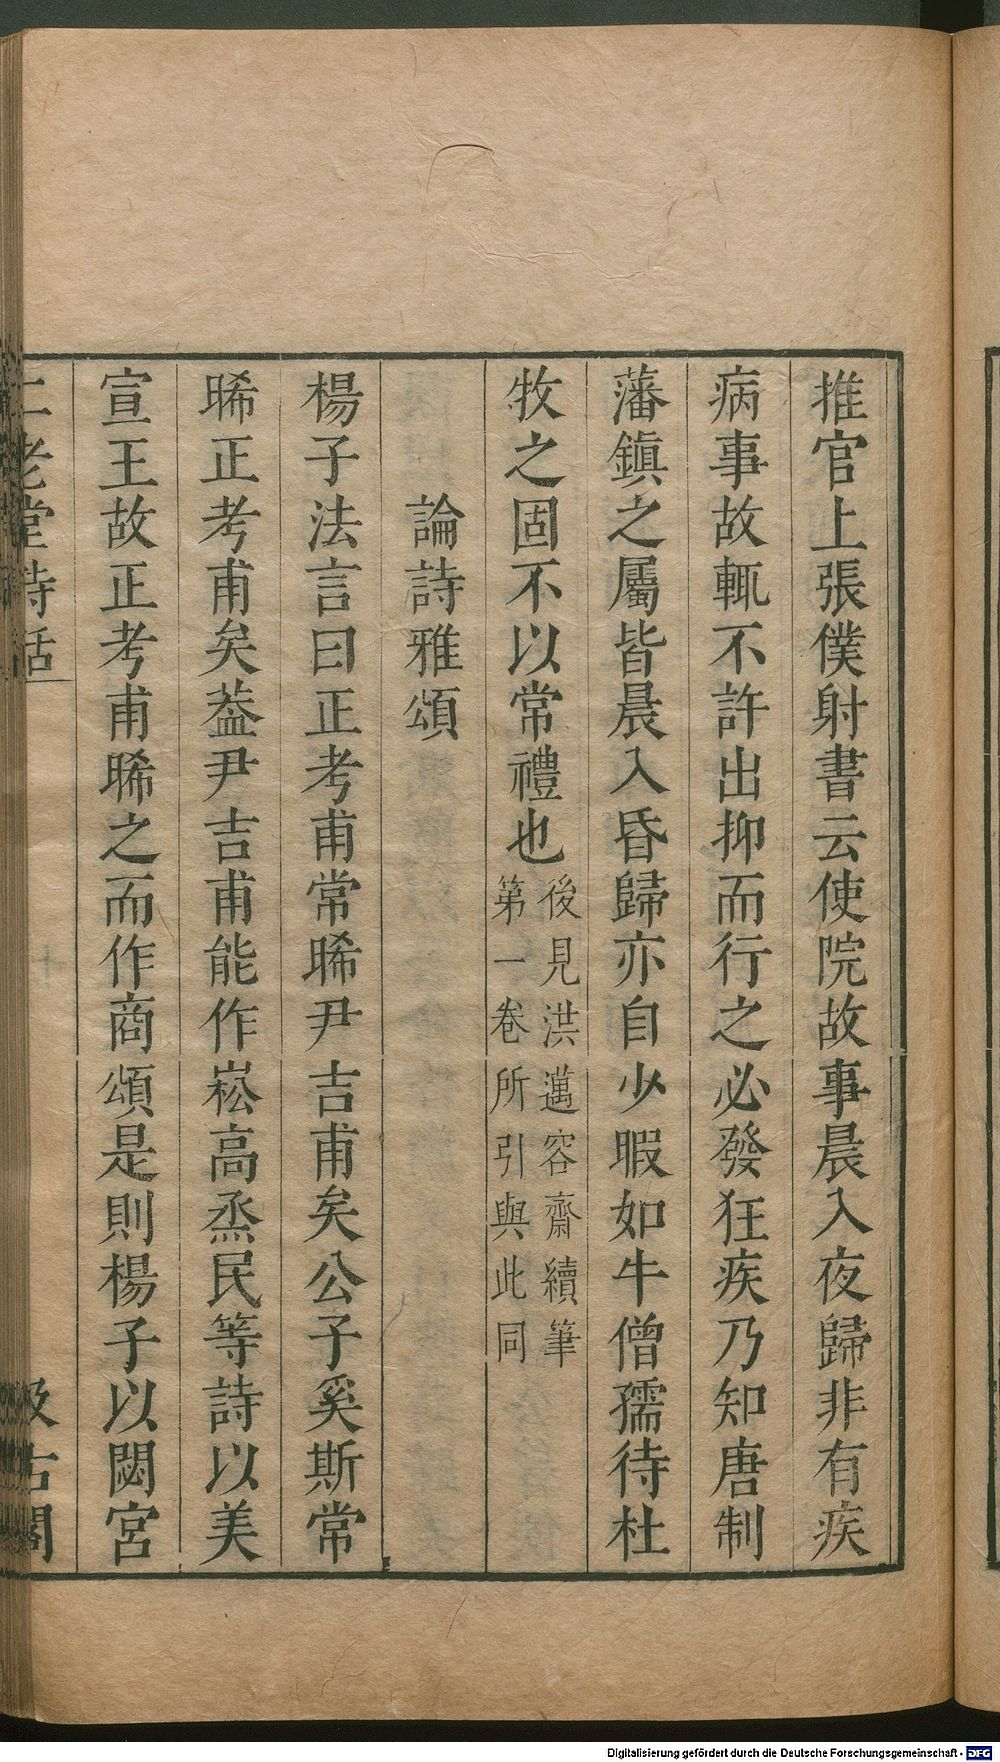 推官上張僕射書云使院故事晨入夜歸非有疾
病事故輒不許出抑而行之必發狂疾乃知唐制
藩鎮之屬皆晨入昏歸亦自少暇如牛僧孺待杜
牧之固不以常禮也後見洪邁容齋續筆
第一卷所引與此同
論詩雅頌
楊子法言曰正考甫常睎尹吉甫矣公子奚斯常
睎正考甫矣葢尹吉甫能作崧高烝民等詩以美
宣王故正考甫睎之而作商頌是則楊子以閟宮
二老堂詩話
汲古閣
Digitalisierung gefördert durch die Deutsche Forschungsgemeinschaft - DFG